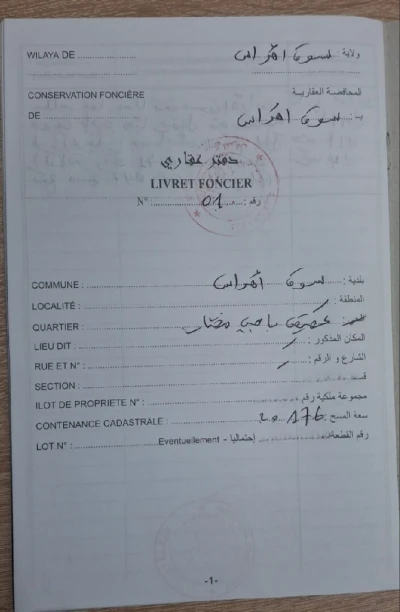 WILAYA DE .................. سوق أهراس ولاية :
CONSERVATION FONCIÈRE المحافظة العقارية
DE .................. سوق أهراس بـ :
دفتر عقاري
LIVRET FONCIER
N° : .......... 01 ...... رقم :
COMMUNE : ........ سوق أهراس ........ بلدية :
LOCALITÉ : ........ المنطقة :
QUARTIER : ........ باجي مختار
LIEU DIT : ........ المكان المدكور :
RUE ET N° : ........ / ........ الشارع و الرقم :
SECTION : ........ قسم
ILOT DE PROPRIETE N° : ........ مجموعة ملكية رقم
CONTENANCE CADASTRALE : ........ سعة المسح :
LOT N° : ........ Eventuellement - إحتماليا ........ رقم القطعة
-1-